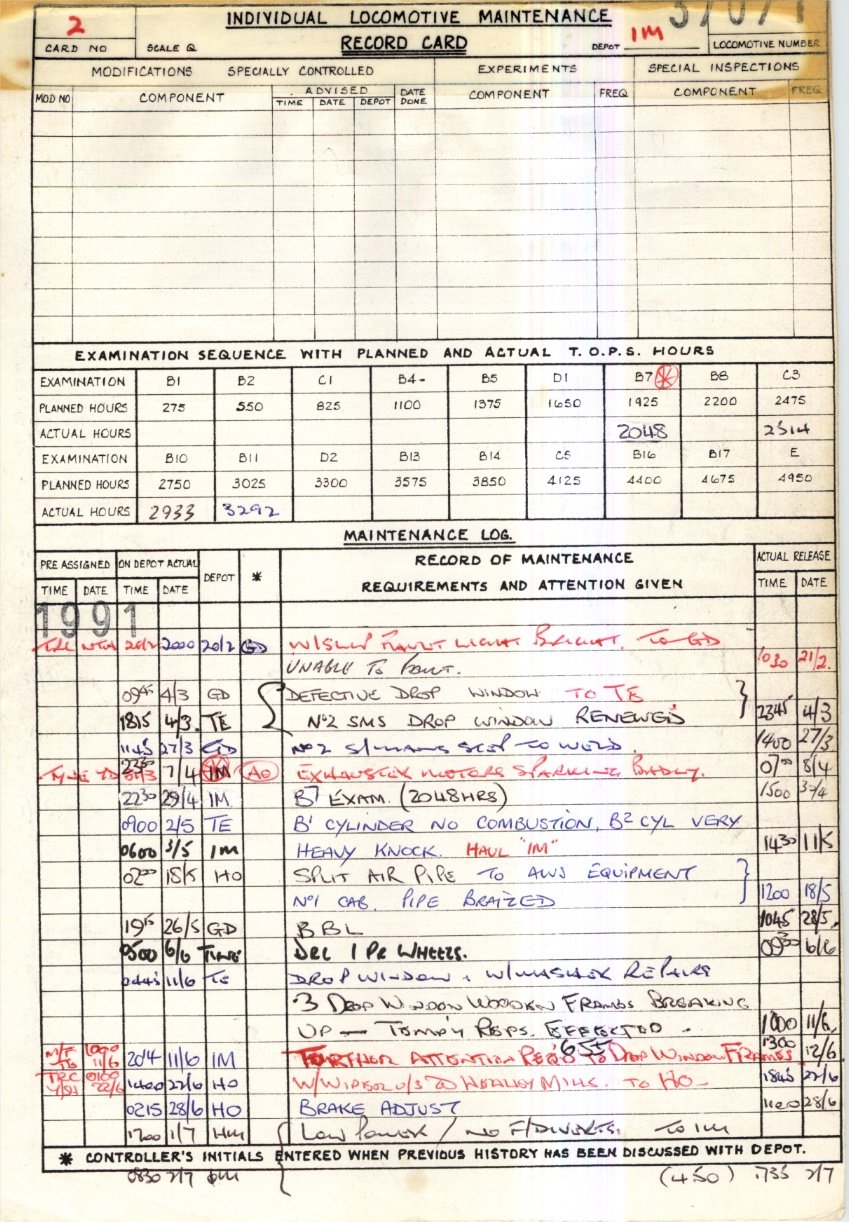 2
INDIVIDUAL LOCOMOTIVE MAINTENANCE
37071
CARD NO
SCALE Q
RECORD CARD
DEPOT IM
LOCOMOTIVE NUMBER
MODIFICATIONS SPECIALLY CONTROLLED
EXPERIMENTS
SPECIAL INSPECTIONS
MOD NO COMPONENT ADVISED DATE DONE COMPONENT FREQ COMPONENT FREQ
TIME DATE DEPOT
EXAMINATION SEQUENCE WITH PLANNED AND ACTUAL T.O.P.S. HOURS
EXAMINATION B1 B2 C1 B4 B5 D1 B7 B8 C3
PLANNED HOURS 275 550 825 1100 1375 1650 1925 2200 2475
ACTUAL HOURS 2048 2514
EXAMINATION B10 B11 D2 B13 B14 C5 B16 B17 E
PLANNED HOURS 2750 3025 3300 3575 3850 4125 4400 4675 4950
ACTUAL HOURS 2933 3292
MAINTENANCE LOG.
PRE ASSIGNED ON DEPOT ACTUAL DEPOT * RECORD OF MAINTENANCE ACTUAL RELEASE
TIME DATE TIME DATE REQUIREMENTS AND ATTENTION GIVEN TIME DATE
1991
2000 20/2 GD FAULT LIGHT BRIGHT. TO GD
UNABLE TO 1030 21/2.
0945 4/3 GD DEFECTIVE DROP WINDOW TO TE
1815 4/3. TE Nº2 SMS DROP WINDOW RENEWED 2345 4/3
1145 27/3 GD Nº2 TO WELD. 1400 27/3
2330 7/4 IM AO EXHAUSTER MOTORS SPARKING BADLY. 0700 8/4
2230 29/4 IM B7 EXAM. (2048HRS) 1500
0900 2/5 TE B1 CYLINDER NO COMBUSTION, B2 CYL VERY
0600 3/5 IM HEAVY KNOCK. HAUL "IM" 1430 11/5
0200 18/5 HO SPLIT AIR PIPE TO AWS EQUIPMENT
Nº1 CAB. PIPE BRAIZED 1200 18/5
1915 26/5 GD BBL 1045 28/5.
0500 6/6 TYNE 1 PR WHEELS. 0930 6/6
0445 11/6 TE DROP WINDOW + W/WASHER REPAIRS
3 DROP WINDOW WOODEN FRAMES BREAKING
UP — TEMP'Y REPS. EFFECTED. 1000 11/6
M/T TE 1000 11/6 2014 11/6 IM FURTHER ATTENTION REQ'D TO DROP WINDOW FRAMES 655 1300 12/6
0100 22/6 1400 22/6 HO W/WIPER U/S TO HEALEY MILLS. TO HO 1845 22/6
0215 28/6 HO BRAKE ADJUST 1100 28/6
1200 1/7 HM LOW POWER / NO F/DIVERTS. TO IM
* CONTROLLER'S INITIALS ENTERED WHEN PREVIOUS HISTORY HAS BEEN DISCUSSED WITH DEPOT.
0830 2/7 IM (450) 1735 2/7